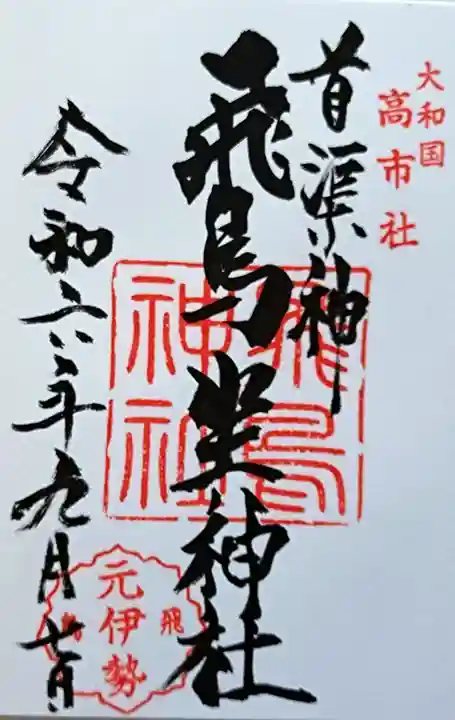 大和国
高市社
首渠神
飛鳥坐神社
令和六年九月廿日
飛鳥
神社
飛
元伊勢